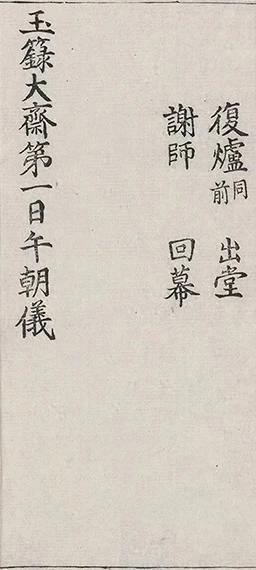 復爐同前 出堂
謝師 回幕
玉籙大齋第一日午朝儀